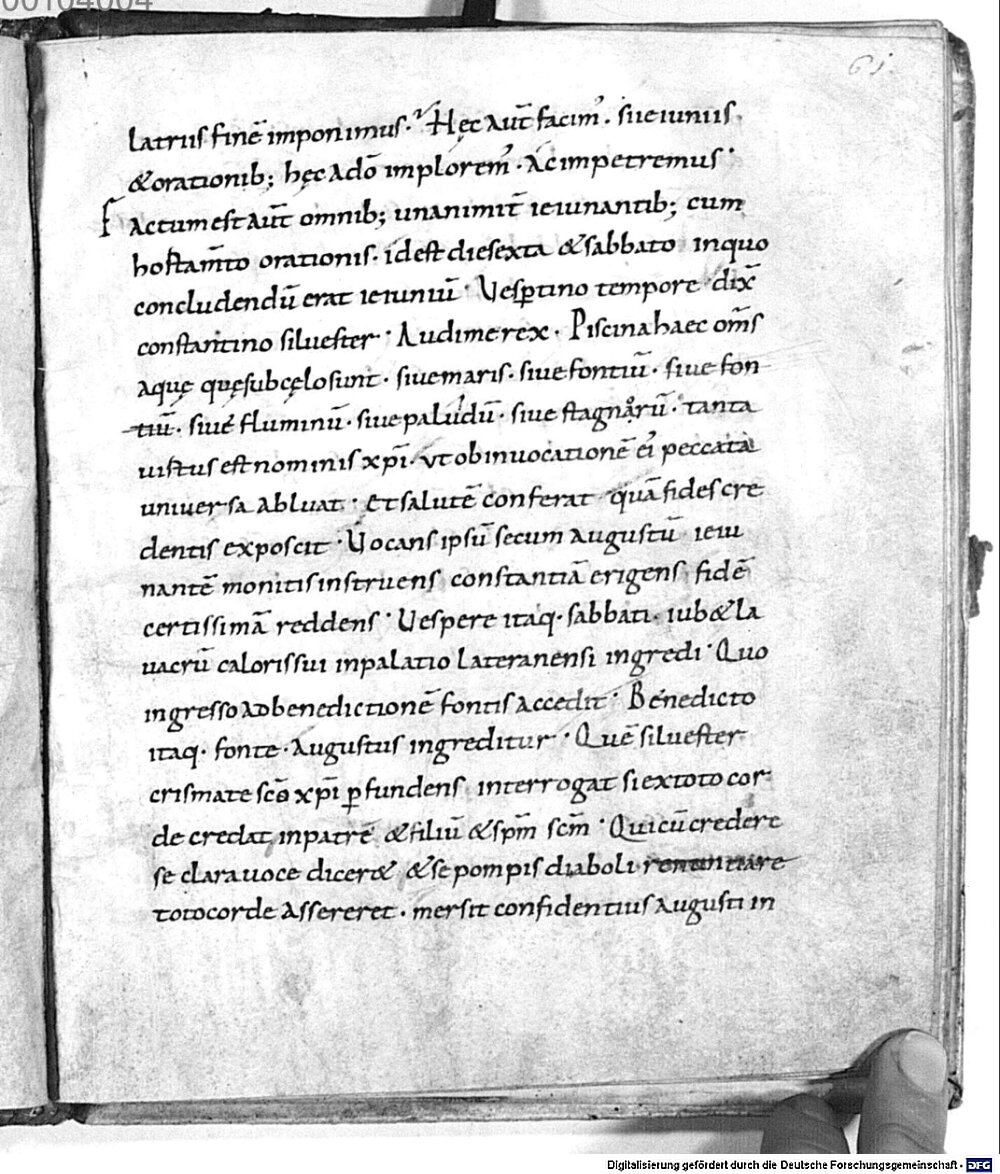 00104004
61.
latriis finē imponimus. Hęc aut̄ facim᾽. si ieiuniis
&orationib; hęc adō implorem᾽. ac impetremus.
Factum est aut̄ omnib; unanimit̄ ieiunantib; cum
hostam̄to orationis. id est die sexta & sabbato in quo
concludendū erat ieiuniū. Vesptino tempore dix̄
constantino siluester. Audi me rex. Piscina haec om̄s
aquę quę sub cęlo sunt. siue maris. siue fontiū. siue fon
tiū. siue fluminū. siue paludū. siue stagnorū. tanta
uirtus est nominis xp̄i. ut ob inuocationē ei᾽ peccata
uniuersa abluat. Et salutē conferat quā fides cre
dentis exposcit. Vocans ipsū secum augustū ieiu
nantē monitis instruens constantiā erigens fidē
certissimā reddens. Vespere itaq. sabbati. iub& la
uacrū caloris sui in palatio lateranensi ingredi. Quo
ingresso ad benedictionē fontis accedit. Benedicto
itaq. fonte. augustus ingreditur. Quē siluester
crismate scō xp̄i ꝑfundens interrogat si ex toto cor
de credat in patrē &filiū &sp̄m sc̄m. Qui cū credere
se clara uoce dicer& &se pompis diaboli renuntiare
toto corde assereret. mersit confidentius augusti in
Digitalisierung gefördert durch die Deutsche Forschungsgemeinschaft - DFG